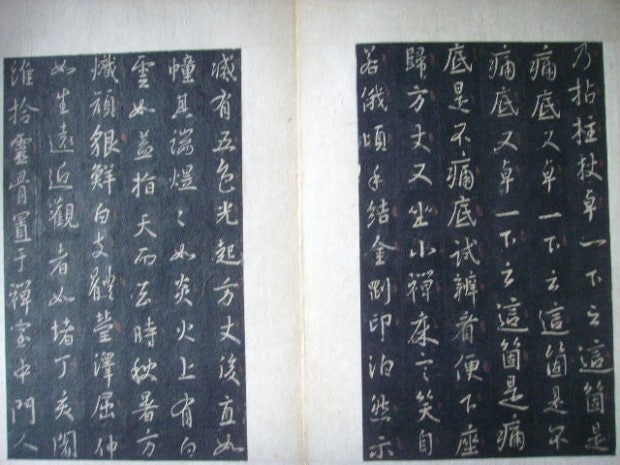 乃拈拄杖卓一下云這箇是
痛底又卓一下云這箇是不
痛底又卓一下云這箇是痛
底是不痛底試辨看便下座
歸方丈又坐小禪床言笑自
若俄頃手結金剛印泊然示
滅有五色光起方丈後直如
幢其端煜〻如炎火上有白
雲如蓋指天而去時秋暑方
熾頎貌鮮白支體瑩澤屈伸
如生遠近觀者如堵丁亥闍
維拾靈骨置于禪室中門人